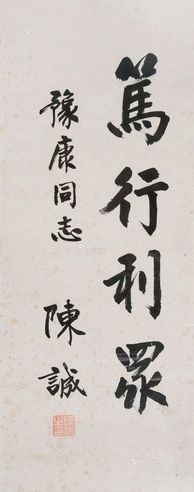 篤行利眾
豫康同志
陳誠